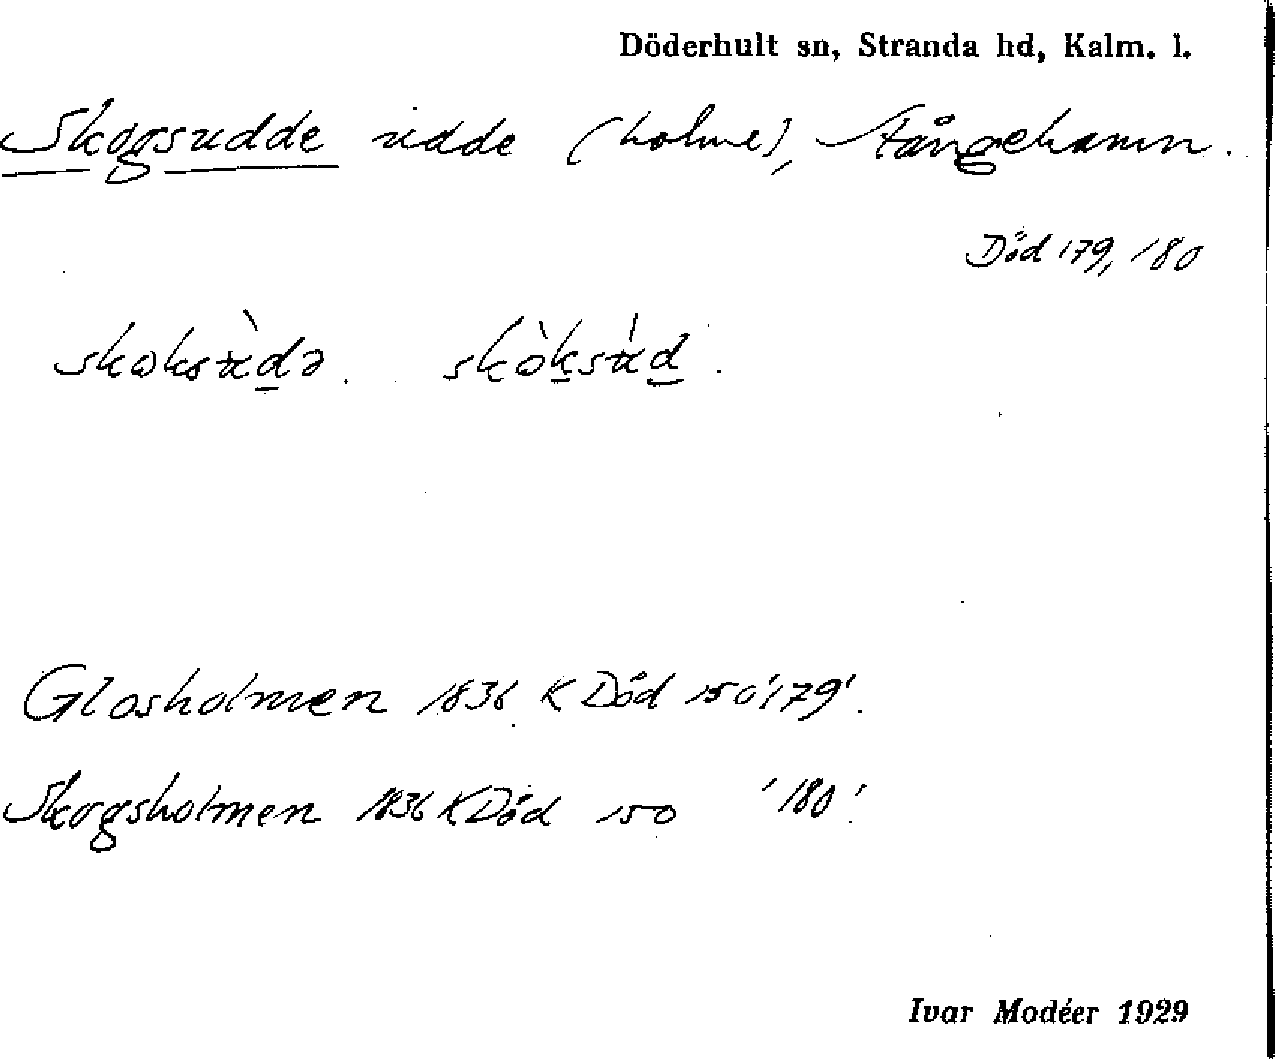 Döderhult sn, Stranda hd, Kalm. l.
Skogsudde udde (holme), Stångehamn.
Död 179, 180
skoksùdə. skòksúd.
Glosholmen 1836 K Död 150 '179'.
Skogsholmen 1836 K Död 150 '180'.
Ivar Modéer 1929